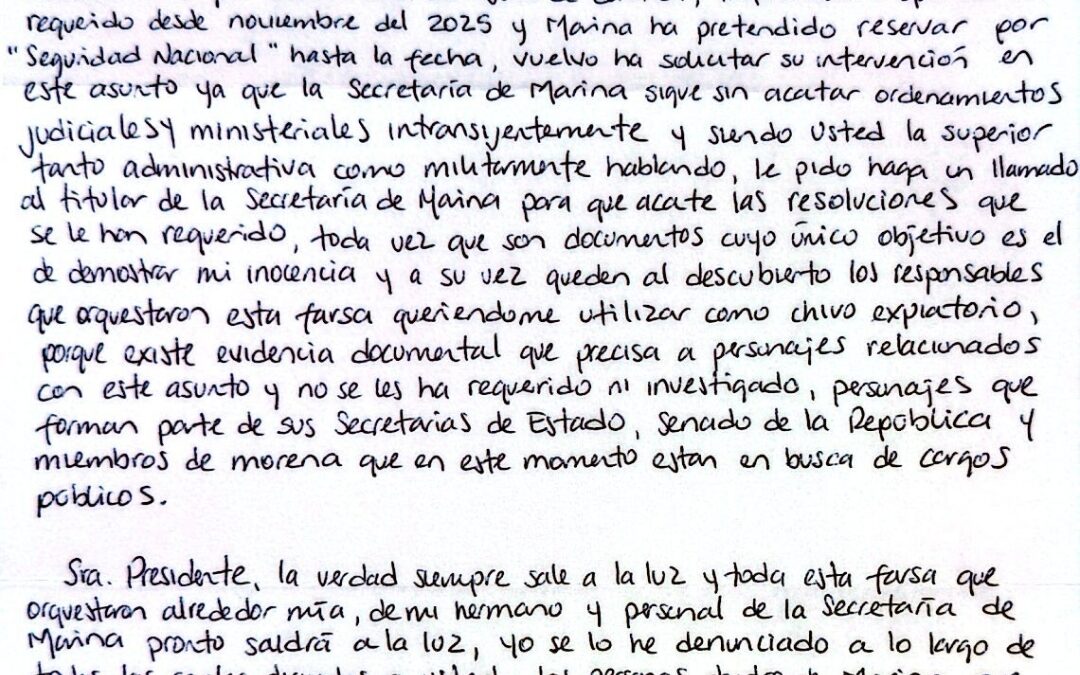 requerido desde noviembre del 2025 y Marina ha pretendido reservar por
"Seguridad Nacional" hasta la fecha, vuelvo ha solicitar su intervención en
este asunto ya que la Secretaría de Marina sigue sin acatar ordenamientos
judiciales y ministeriales intransijentemente y siendo usted la superior
tanto administrativa como militarmente hablando, le pido haga un llamado
al titular de la Secretaría de Marina para que acate las resoluciones que
se le han requerido, toda vez que son documentos cuyo único objetivo es el
de demostrar mi inocencia y a su vez queden al descubierto los responsables
que orquestaron esta farsa queriendome utilizar como chivo expiatorio,
porque existe evidencia documental que precisa a personajes relacionados
con este asunto y no se les ha requerido ni investigado, personajes que
forman parte de sus Secretarias de Estado, Senado de la República y
miembros de morena que en este momento estan en busca de cargos
públicos.
Sra. Presidente, la verdad siempre sale a la luz y toda esta farsa que
orquestaron alrededor mía, de mi hermano y personal de la Secretaría de
Marina pronto saldrá a la luz, yo se lo he denunciado a lo largo de